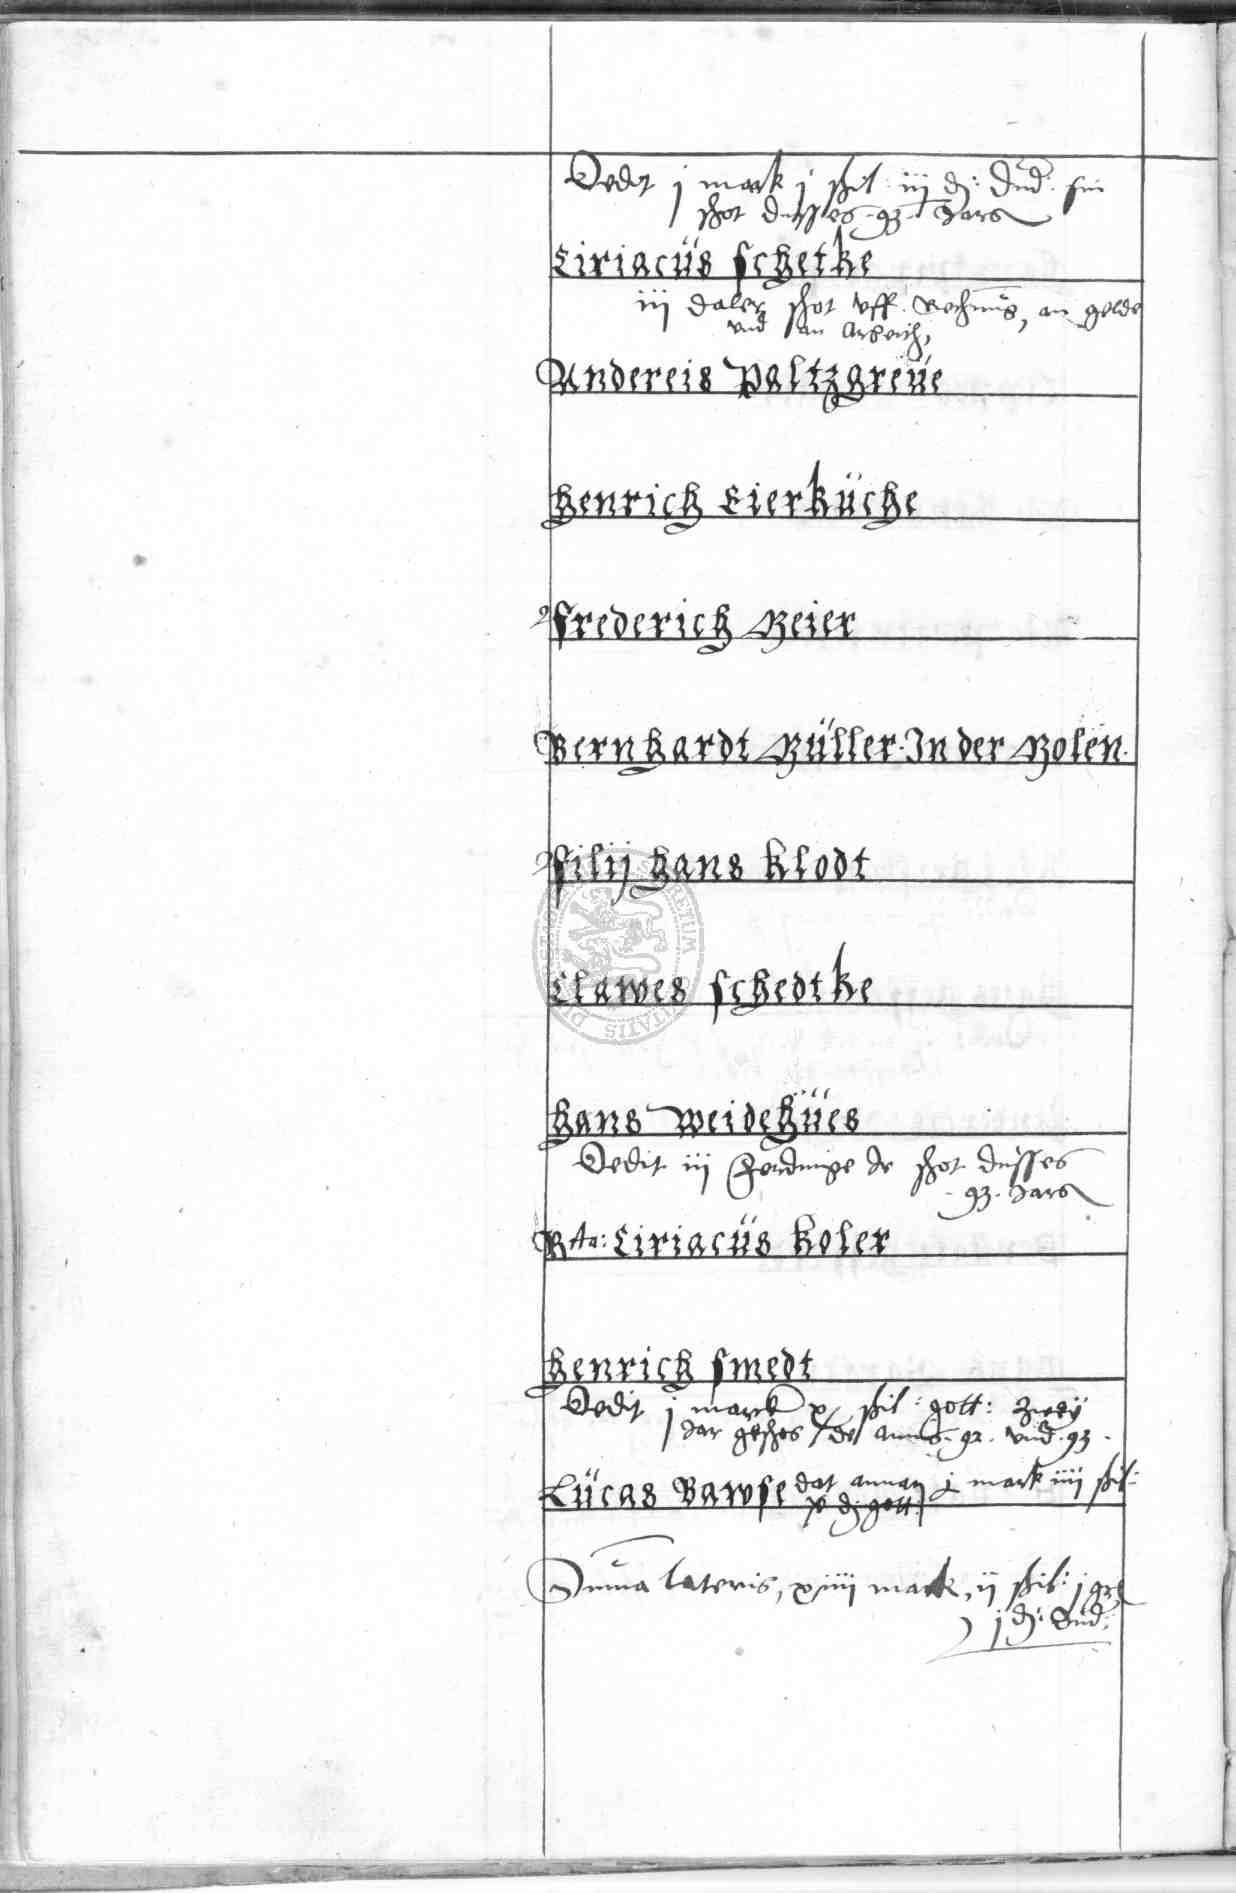 Dedit j mark j shil: iij d: dud. sin
shot dusses .93. Jars
Ciriacüs schetke
iij daler shot vff. Rechnus, an gelde
vnd an Arbeith,
Andereis Paltzgreüe
Henrich Eierküche
Frederich Meier
Bernhardt Müller. In der Molen.
Filij Hans Klodt
Clawes schedtke
Hans Weidehües
Dedit iij ferdinge de shot dusses
.93. Jars
Rta: Ciriacüs Koler
Henrich smedt
Dedit j marck x shil: gott: Zweÿ
Jar geschos de annis. 92. vnd .93.
Lücas Bawse dat annan j mark iiij shil:
x d: gott:
Suma lateris, xiiij mark, ij shil: j
j d: Sud: